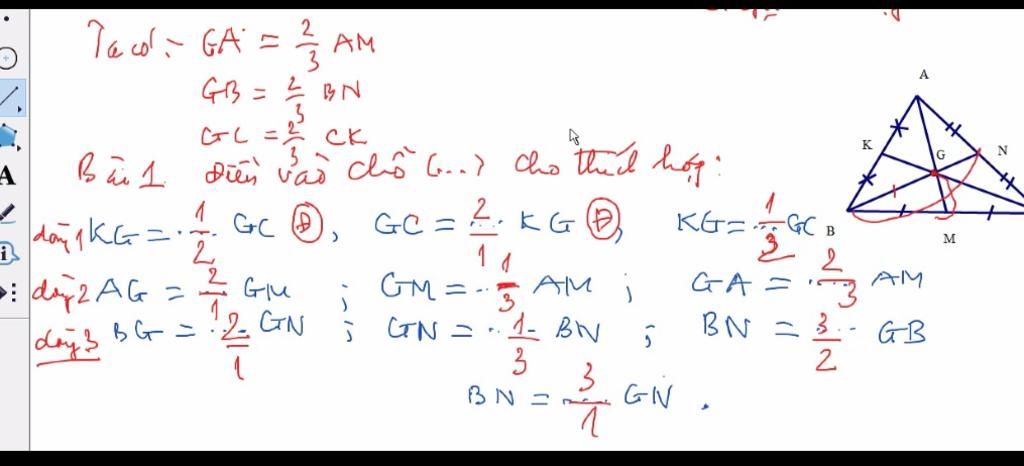 Ta có:- GA = 2/3 AM
GB = 2/3 BN
GC = 2/3 CK
Bài 1 Điền vào chỗ (...) cho thích hợp:
dòng 1 KG = 1/2 GC Đ, GC = 2/1 KG Đ, KG = 1/3 GC
dòng 2 AG = 2/1 GM ; GM = 1/3 AM ; GA = 2/3 AM
dòng 3 BG = 2/1 GN ; GN = 1/3 BN ; BN = 3/2 GB
BN = 3/1 GN .
A
K
N
G
B
M
A